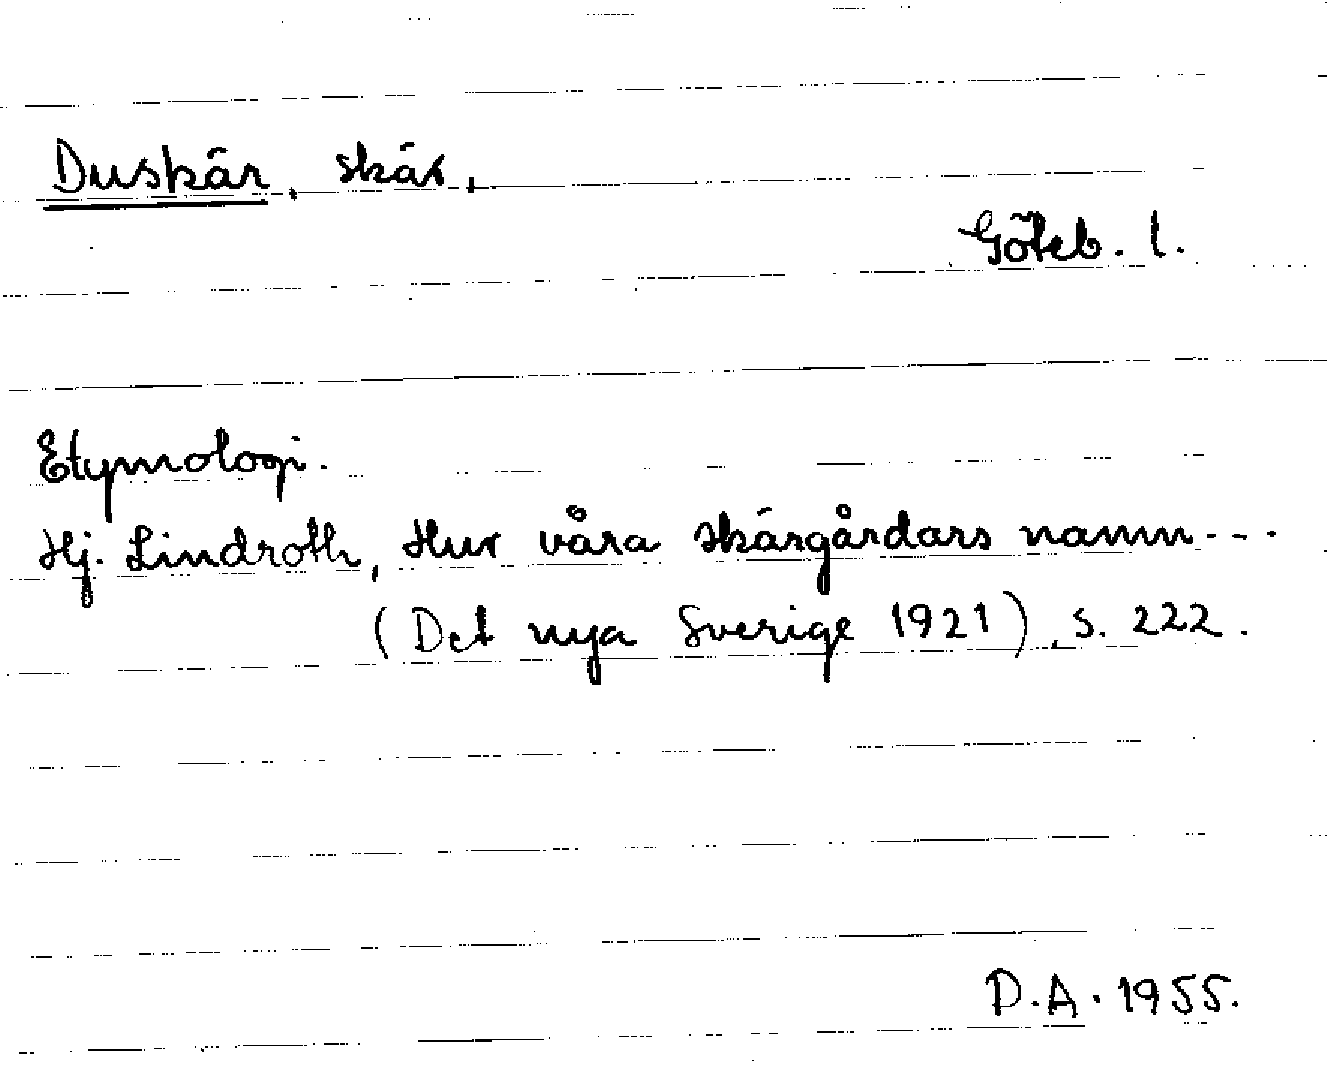 Duskär, skär,
Göteb. l.
Etymologi.
Hj. Lindroth, Hur våra skärgårdars namn---
(Det nya Sverige 1921), s. 222.
D.A. 1955.